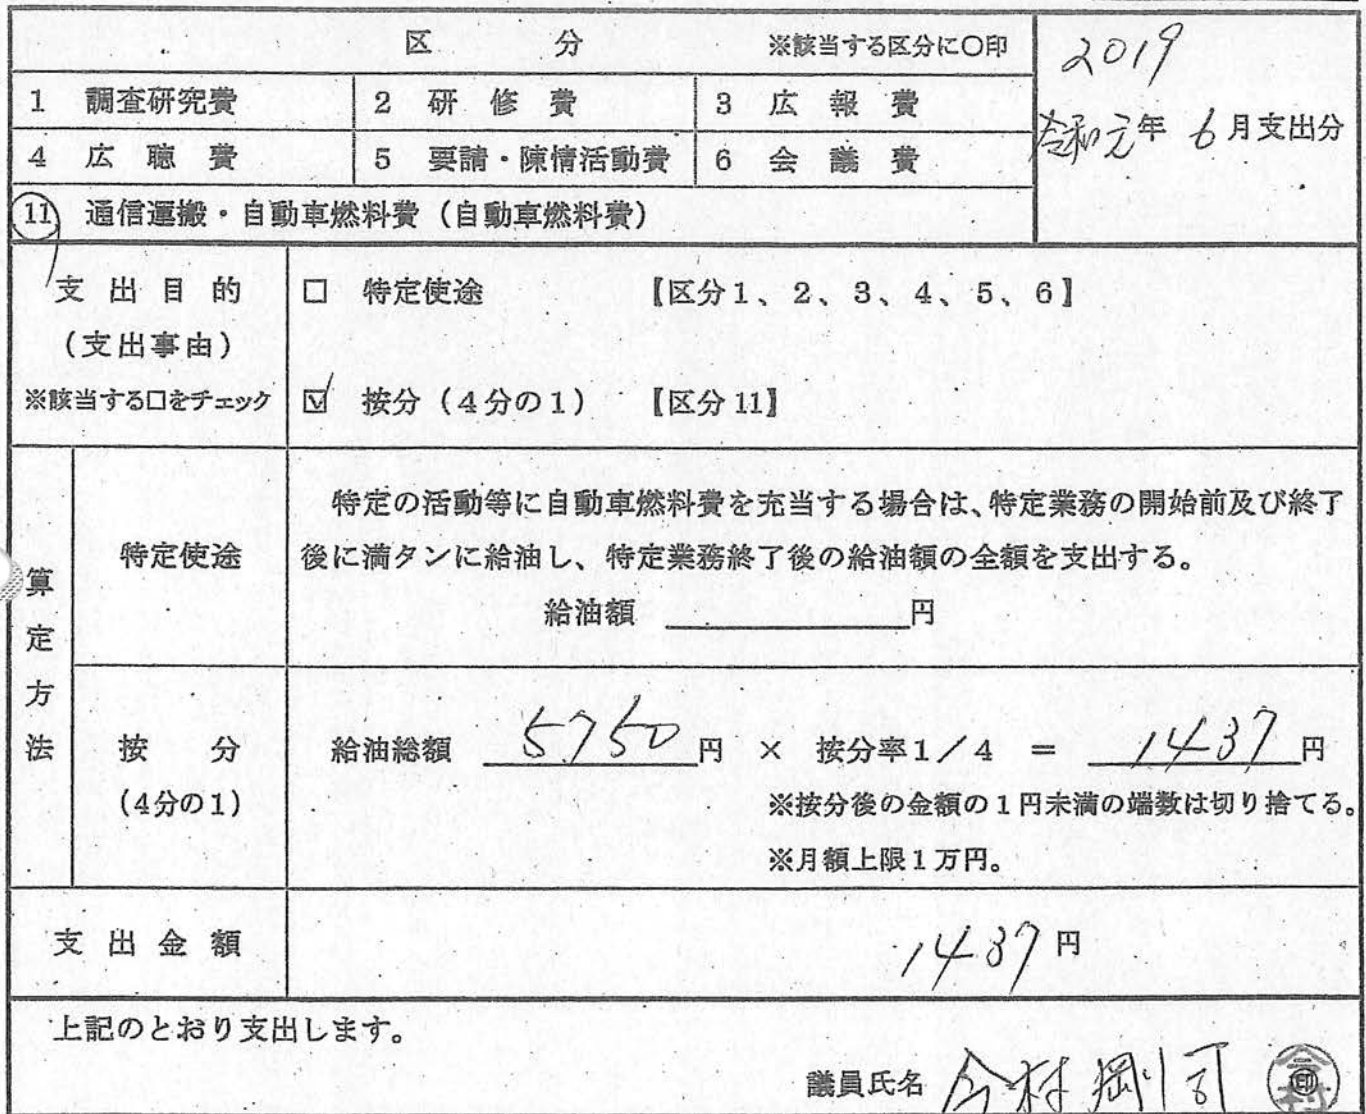 区 分 ※該当する区分に○印
2019
1 調査研究費 2 研修費 3 広報費
令和元年 6月支出分
4 広聴費 5 要請・陳情活動費 6 会議費
11 通信運搬・自動車燃料費(自動車燃料費)
支出目的
(支出事由)
※該当する口をチェック
□ 特定使途 【区分1、2、3、4、5、6】
☑ 按分(4分の1) 【区分11】
算定方法
特定使途
特定の活動等に自動車燃料費を充当する場合は、特定業務の開始前及び終了
後に満タンに給油し、特定業務終了後の給油額の全額を支出する。
給油額 円
按分
(4分の1)
給油総額 5750円 × 按分率1/4 = 1437円
※按分後の金額の1円未満の端数は切り捨てる。
※月額上限1万円。
支出金額 1437円
上記のとおり支出します。
議員氏名 今村剛司 ㊞